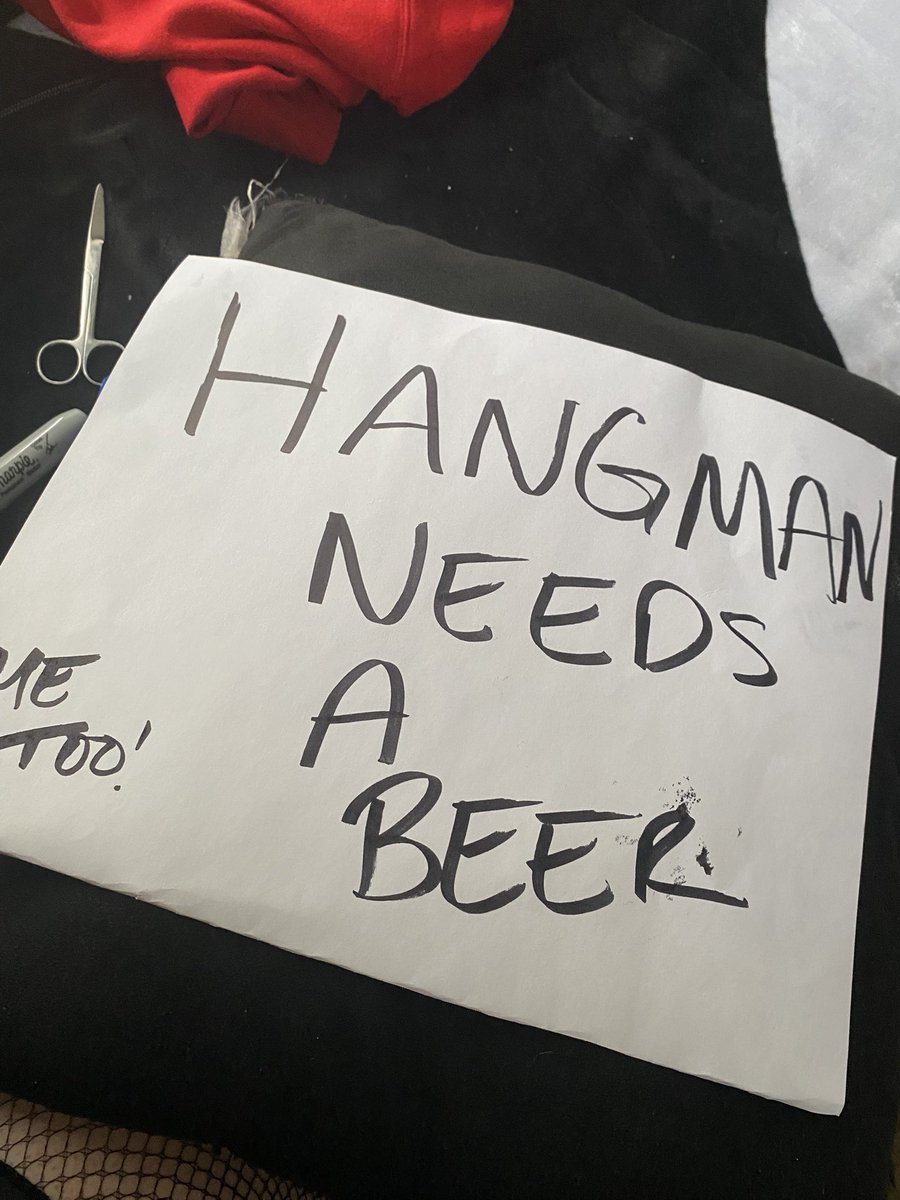 HANGMAN
NEEDS
A
BEER
ME
TOO!
Sharpie